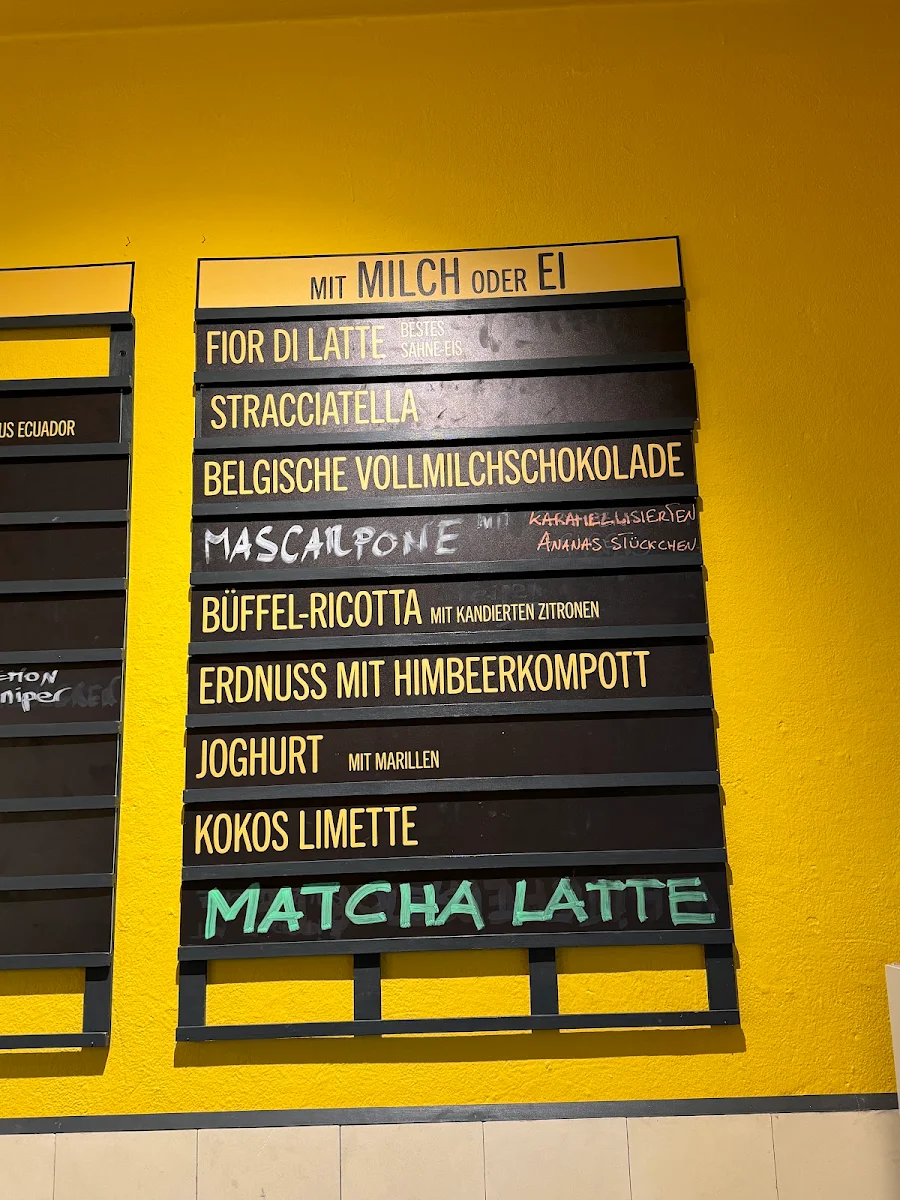 MIT MILCH ODER EI
FIOR DI LATTE BESTES
SAHNE-EIS
STRACCIATELLA
BELGISCHE VOLLMILCHSCHOKOLADE
MASCARPONE MIT KARAMELLISIERTEN
ANANAS STÜCKCHEN
BÜFFEL-RICOTTA MIT KANDIERTEN ZITRONEN
ERDNUSS MIT HIMBEERKOMPOTT
JOGHURT MIT MARILLEN
KOKOS LIMETTE
MATCHA LATTE
US ECUADOR
niper